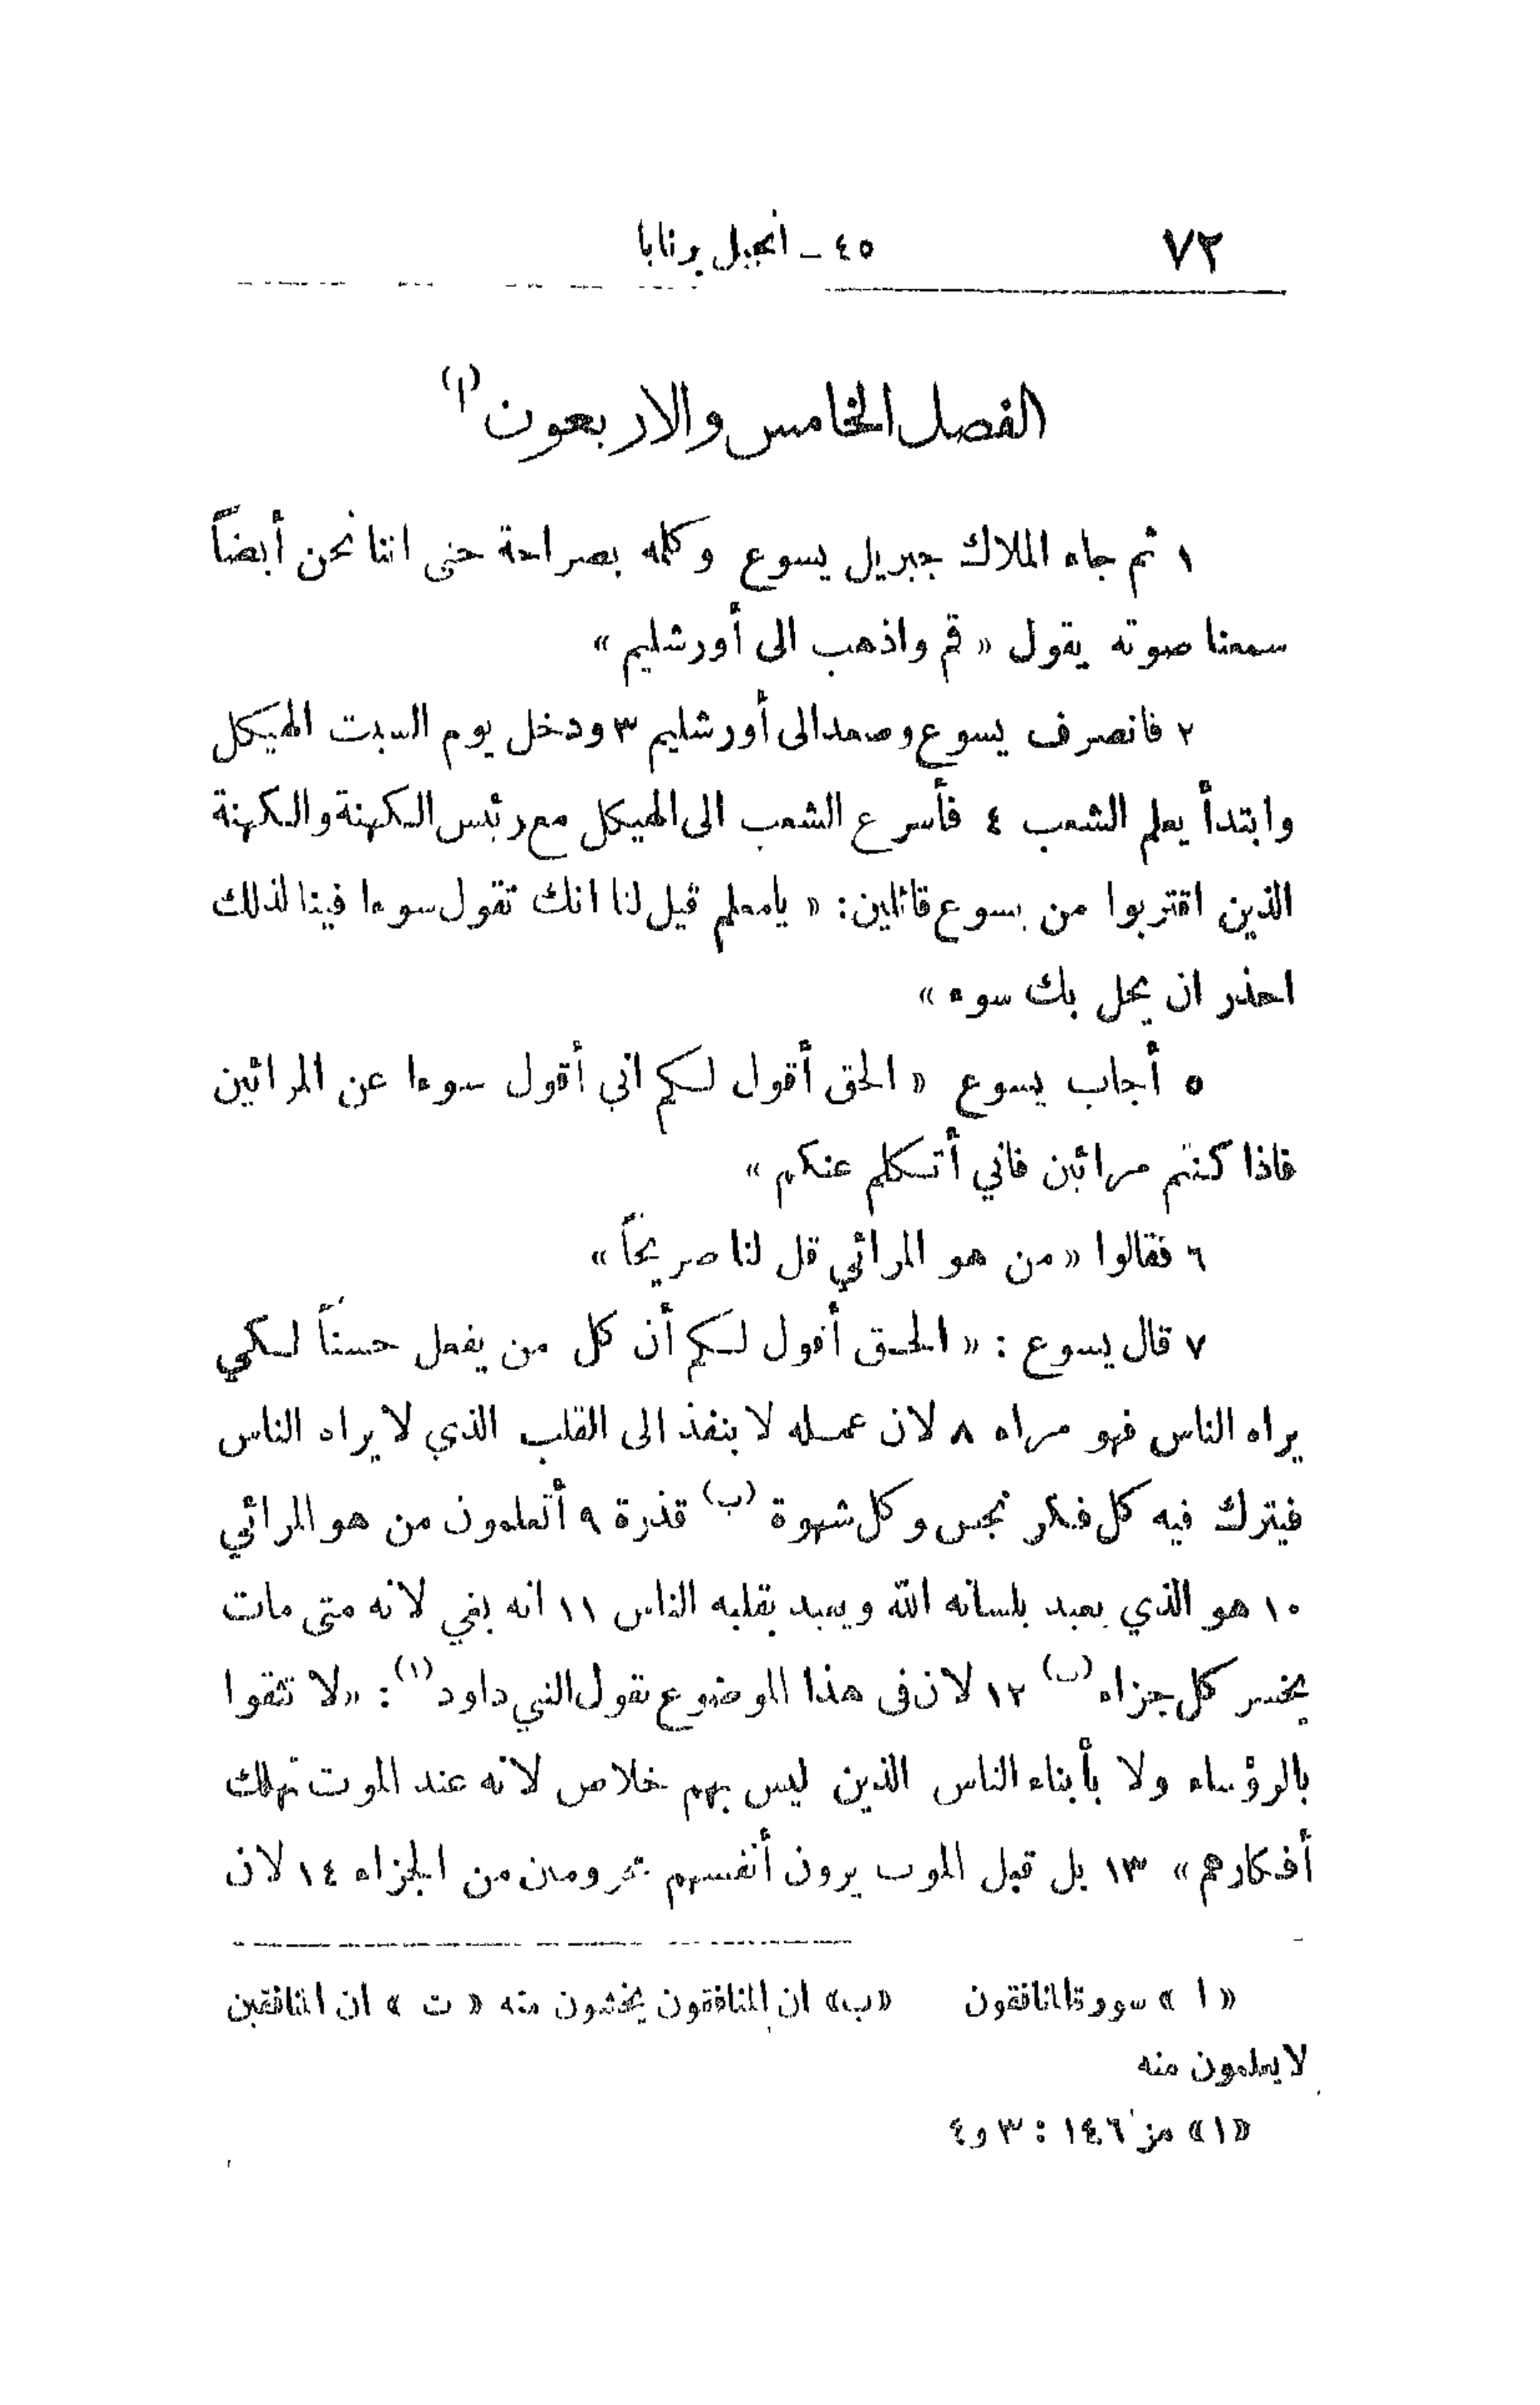 ٧٢
٤٥ - انجيل برنابا
الفصل الخامس والاربعون (١)
١ ثم جاء الملاك جبريل يسوع وكلمه بصراحة حتى اننا نحن أيضاً
سمعنا صوته يقول « قم واذهب الى أورشليم »
٢ فانصرف يسوع وصعد الى أورشليم ٣ ودخل يوم السبت الهيكل
وابتدأ يعلم الشعب ٤ فأسرع الشعب الى الهيكل مع رئيس الكهنة والكهنة
الذين اقتربوا من يسوع قائلين: « يامعلم قيل لنا انك تقول سوءا فينا لذلك
احذر ان يحل بك سوء »
٥ أجاب يسوع « الحق أقول لكم اني أقول سوءا عن المرائين
فاذا كنتم مرائين فاني أتكلم عنكم »
٦ فقالوا « من هو المرائي قل لنا صريحاً »
٧ قال يسوع : « الحق أقول لكم أن كل من يفعل حسناً لكي
يراه الناس فهو مراء ٨ لان عمله لا ينفذ الى القلب الذي لا يراه الناس
فيترك فيه كل فكر نجس وكل شهوة (ب) قذرة ٩ أتعلمون من هو المرائي
١٠ هو الذي يعبد بلسانه الله ويعبد بقلبه الناس ١١ انه بغي لانه متى مات
يخسر كل جزاء (ت) ١٢ لان فى هذا الموضوع يقول النبي داود (١) : « لا تثقوا
بالرؤساء ولا بأبناء الناس الذين ليس بهم خلاص لانه عند الموت تهلك
أفكارهم » ١٣ بل قبل الموت يرون أنفسهم محرومين من الجزاء ١٤ لان
« ا » سورة المنافقون «ب» ان المنافقون يخشون منه « ت » ان المنافقين
لا يعلمون منه
«١» مز ١٤٦ : ٣ و ٤